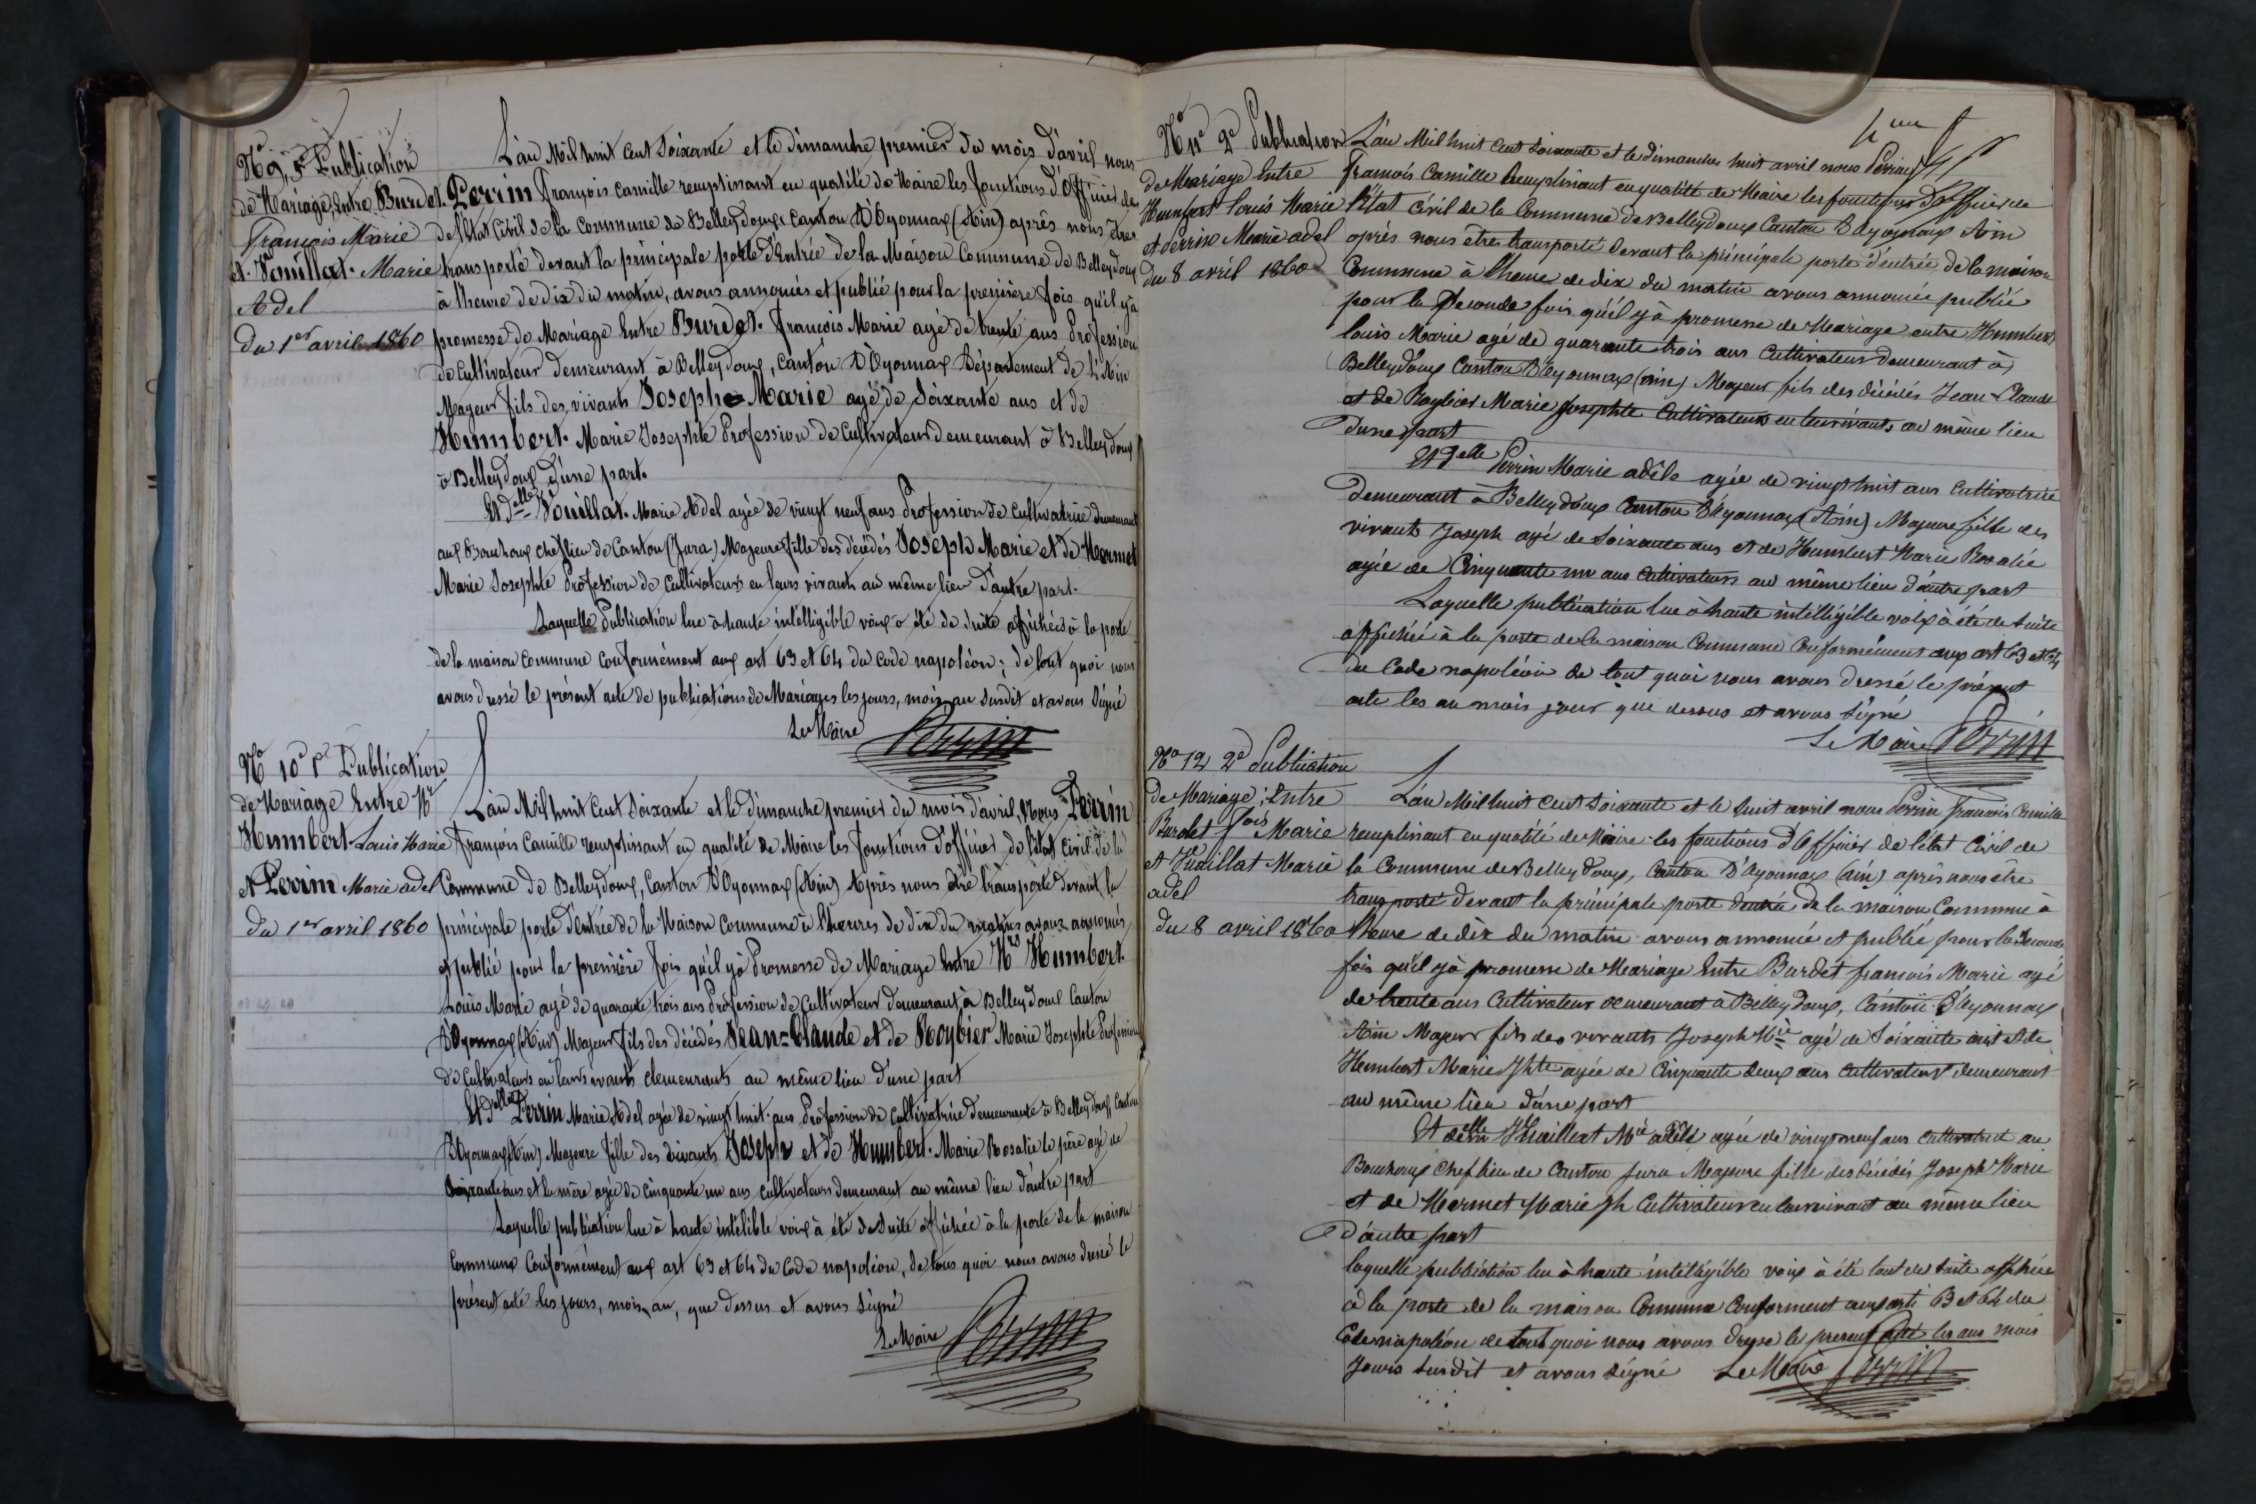 No 9, 1e Publication
de Mariage, Entre Burdet.
François Marie
et Vouillat. Marie
Adel
du 1er avril 1860
L'an Mil huit Cent Soixante et le dimanche premier du mois d'avril nous
Perrin François camille remplissant en qualité de Maire les fonctions d'Officier de
de l'Etat Civil de la Commune de Belleydoux Canton d'Oyonnax (Ain) après nous être
transporté devant la principale porte d'Entrée de la Maison Commune de Belleydoux
à l'heure de dix du matin, avons annoncés et publié pour la première fois qu'il y à
promesse de Mariage Entre Burdet. François Marie agé de trente ans Profession
de Cultivateur demeurant à Belleydoux, Canton d'Oyonnax Département de l'Ain
Majeur fils des vivants Joseph Marie agé de Soixante ans et de
Humbert. Marie Josephte Profession de Cultivateurs demeurant à Belleydoux
à Belleydoux d'une part.
Et delle Vouillat. Marie Adel agée de vingt neuf ans Profession de Cultivatrice demeurant
aux Bouchoux chef lieu de Canton (Jura) Majeure fille des décédés Joseph Marie et de Mermet
Marie Josephte Profession de Cultivateurs en leurs vivants au même lieu d'autre part.
Laquelle Publication lue à haute intélligible voix a été de suite affichée à la porte
de la maison commune Conformément aux art 63 et 64 du Code napoléon; de tout quoi nous
avons dressé le présent acte de publications de Mariages les jours, mois an susdit et avons Signé
Le Maire Perrin
No 10 1e Publication
de Mariage Entre Mr
Humbert Louis Marie
et Perrin Marie adel
du 1er avril 1860
L'an Mil huit Cent Soixante et le dimanche premier du mois d'avril, Nous Perrin
François Camille remplissant en qualité de Maire les fonctions d'officier de l'état civil de la
Commune de Belleydoux, Canton d'Oyonnax (Ain) Après nous être transporté devant la
principale porte d'Entrée de la Maison Commune à l'heures de dix du matin avons annoncés
et publié pour la première fois qu'il y à Promesse de Mariage Entre Mr Humbert.
Louis Marie agé de quarante trois ans Profession de Cultivateur demeurant à Belleydoux Canton
d'Oyonnax (Ain) Majeur fils des décédés Jean=Claude et de Roybier Marie Josephte Profession
de Cultivateurs en leurs vivants demeurants au même lieu d'une part
Et delle Perrin Marie Adel agée de vingt huit ans Profession de Cultivatrice demeurante à Belleydoux, Canton
d'Oyonnax (Ain) Majeure fille des vivants Joseph et de Humbert. Marie Rosalie le père agé de
Soixante ans et la mère agée de cinquante un ans cultivateurs demeurant au même lieu d'autre part
Laquelle publication lue à haute intélible voix à été de Suite affichée à la porte de la maison
Commune Conformément aux art 63 et 64 du Code napoléon, de tous quoi nous avons dressé le
présent acte les jours, mois, an, que dessus et avons Signé
Le Maire Perrin
No 11e 2e Publication
de Mariage Entre
Humbert louis Marie
et Perrin Marie adel
du 8 avril 1860
L'an Mil huit Cent Soixante et le dimanche huit avril nous Perrin
François Camille Remplissant en qualité de Maire les fonctions d'officier de
l'Etat Civil de la Commune de Belleydoux Canton d'Oyonnax Ain
après nous etre transporté devant la principale porte d'entrée de la maison
Commune à l'heure de dix du matin avons annoncée publiée
pour la Seconde fois qu'il y à promesse de Mariage entre Humbert
louis Marie agé de quarante trois ans Cultivateur demeurant à
Belleydoux Canton d'Oyonnax (ain) Majeur fils des décédés Jean Claude
et de Roybier Marie Josephte Cultivateurs en leurs vivants au même lieu
d'une part
Et delle Perrin Marie adèle agée de vingt huit ans Cultivatrice
demeurant à Belleydoux Canton d'Oyonnax (Ain) Majeure fille des
vivants Joseph agé de Soixante ans et de Humbert Marie Rosalie
agée de Cinquante un ans Cultivateurs au même lieu d'autre part
Laquelle publication lue à haute intélligible voix à été de suite
affichée à la porte de la maison Commune Conformément aux art 63 et 64
du Code napoléon de tout quoi nous avons dressé le présent
acte les an mois jour que dessus et avons Signé
Le Maire Perrin
No 12 2e Publication
de Mariage; Entre
Burdet fois Marie
et Vuaillat Marie
adel
du 8 avril 1860
L'an Mil huit Cent Soixante et le huit avril nous Perrin françois Camille
remplissant en qualité de Maire les fonctions d'Officier de l'état Civil de
la Commune de Belleydoux, Canton d'Oyonnax (ain) après nous être
transporté devant la principale porte d'entrée de la maison Commune à
l'heure de dix du matin avons annoncé et publié pour la Seconde
fois qu'il y à promesse de Mariage Entre Burdet françois Marie agé
de trente ans Cultivateur demeurant à Belleydoux, Canton d'Oyonnax
Ain Majeur fils des vivants Joseph Mie agé de Soixante ans et de
Humbert Marie Jhte agée de Cinquante deux ans Cultivateurs demeurant
au même lieu d'une part
Et delle Vuaillat Mie adèle agée de vingt neuf ans Cultivatrice au
Bouchoux Chef lieu de Canton Jura Majeure fille des décédés Joseph Marie
et de Mermet Marie Jh Cultivateurs en leur vivant au même lieu
d'autre part
laquelle publication lu à haute intélligible voix à été tout de suite affichée
à la porte de la maison Commune Conforment aux arts 63 et 64 du
Code napoléon de tout quoi nous avons dressé le present acte les ans mois
Jours susdit et avons signé Le Maire Perrin